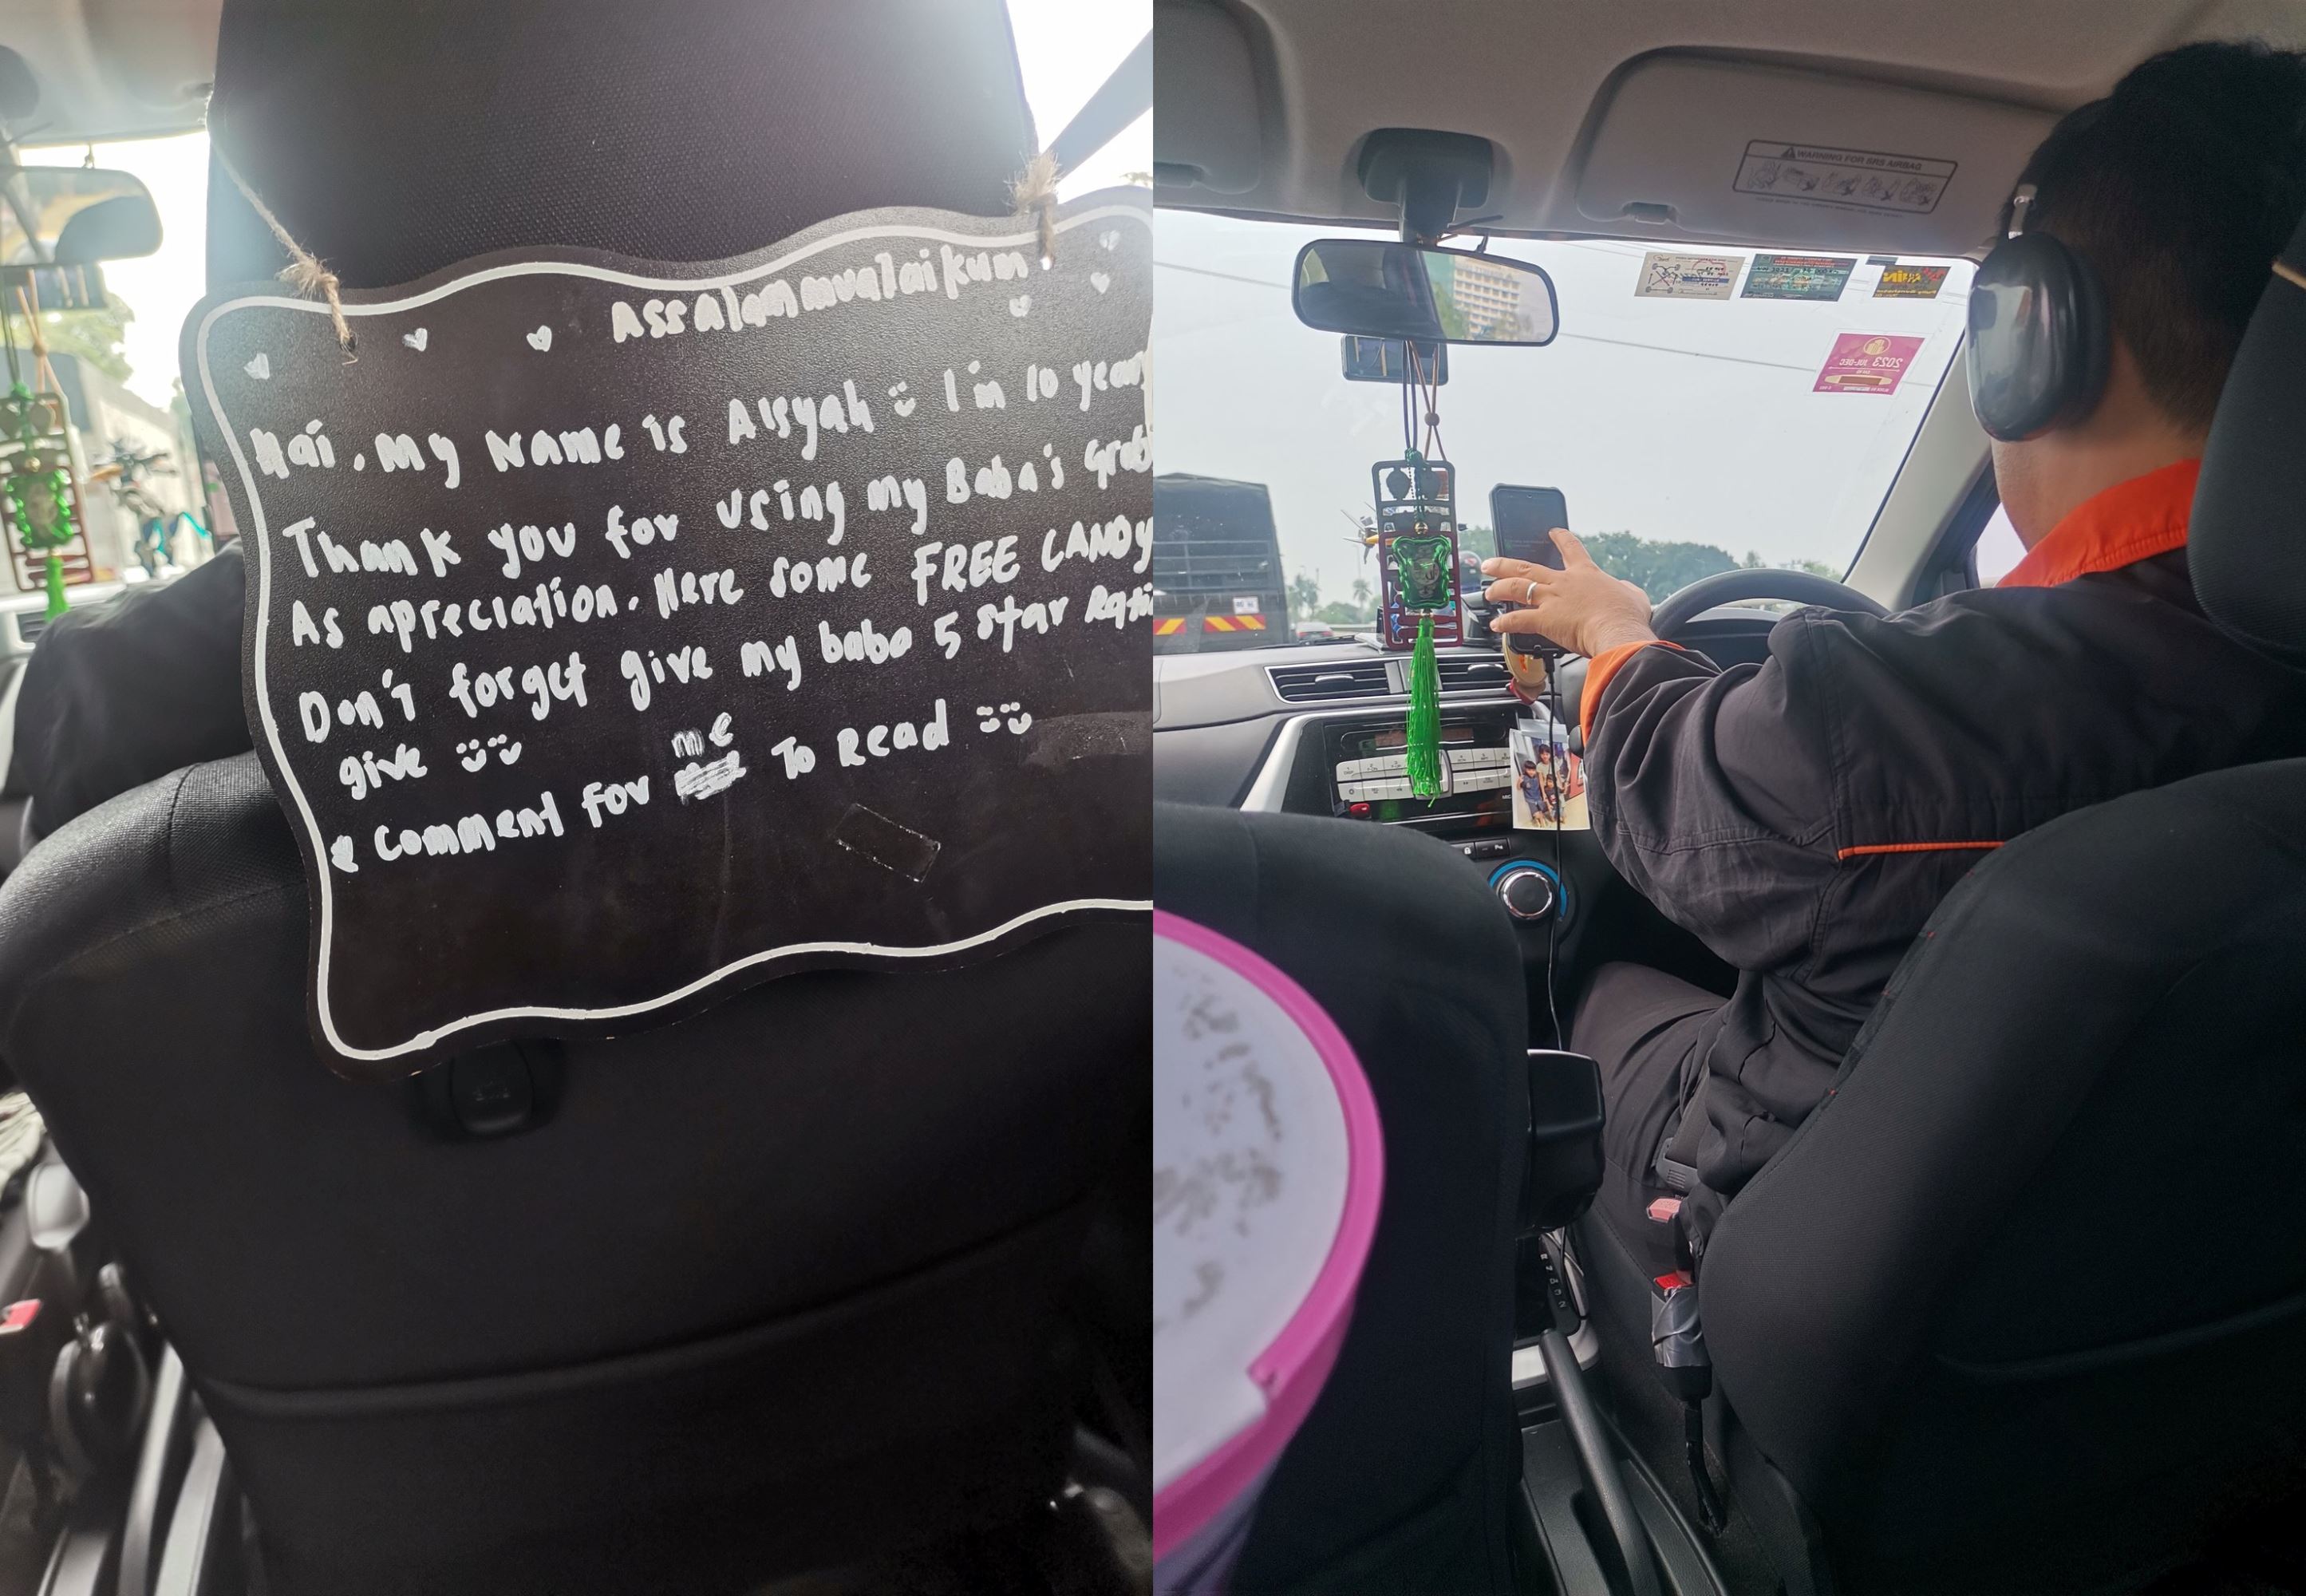 Assalammualaikum
Hai. My Name is Aisyah I'm 10 years
Thank you for using my Baba's Grab
As apreciation. Here some FREE CANDY
Don't forget give my baba 5 star Rati
give
& Comment for me To Read
WARNING FOR SRS AIRBAG
2023 JUL-DEC